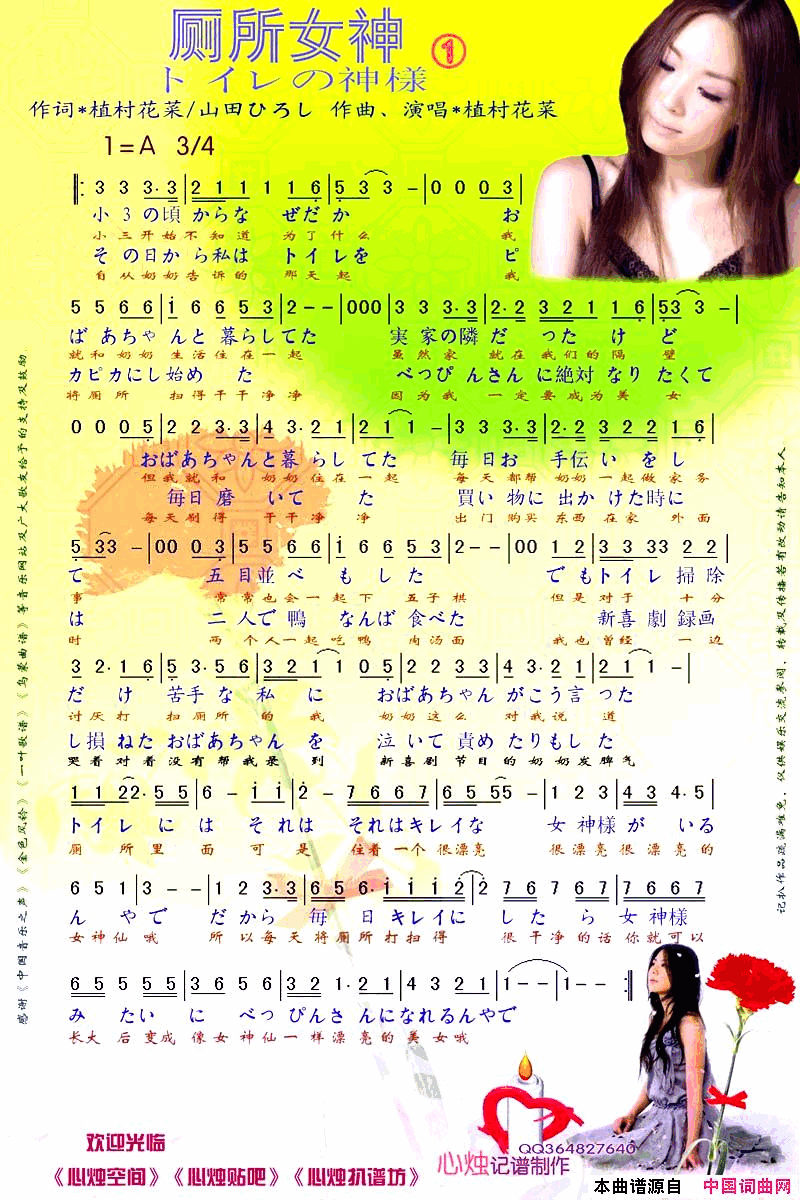 厕所女神 ①
トイレの神様
作词*植村花菜/山田ひろし 作曲、演唱*植村花菜
1=A 3/4
3 3 3· 3 | 2 1 1 1 1 6 | 5 3 3 – | 0 0 0 3 |
小 3 の頃 からな ぜだ か お
小 三 开 始 不 知 道 为 了 什 么 我
そ の日か ら私は トイレを ピ
自 从 奶 奶 告 诉 的 那 天 起 我
5 5 6 6 | i 6 6 5 3 | 2 – – | 000 | 3 3 3· 3 | 2· 2 3 2 1 1 6 | 53 3 – |
ば あちゃ んと 暮らしてた 実 家の隣 だ った けど
就 和 奶 奶 生 活 住 在 一 起 虽 然 家 就 在 我 们 的 隔 壁
カピカにし始め た べっぴ んさん に絶対 なり たくて
将 厕 所 扫 得 干 干 净 净 因 为 我 一 定 要 成 为 美 女
0 0 0 5 | 2 2 2· 3 | 4 3· 2 1 | 2 1 1 – | 3 3 3· 3 | 2 3 2 2 1 6 |
おばあちゃんと暮 らし てた 毎 日お 手伝 い をし
但 我 就 和 奶 奶 住 在 一 起 每 天 都 帮 奶 奶 一 起 做 家 务
毎日 磨 いて た 買い 物に 出か けた時に
每 天 刷 得 干 干 净 净 出 门 购 买 东 西 在 家 外 面
5 33 – | 00 0 3 | 5 5 6 6 | i 6 6 5 3 | 2 – – | 00 1 2 | 3 3 33 2 2 |
て 五目並べ もし た でもトイレ 掃除
事 常 常 也 会 一 起 下 五 子 棋 但 是 对 于 十 分
は 二 人で 鴨 なんば 食べた 新喜 劇 録画
时 两 个 人 一 起 吃 鸭 肉 汤 面 我 也 曾 经 一 边
3 2· 1 6 | 5 3· 5 6 | 3 2 1 1 0 5 | 2 2 2· 3 | 4 3· 2 1 | 2 1 1 – |
だ け 苦手 な 私 に おばあちゃん がこう言 った
讨 厌 打 扫 厕 所 的 我 奶 奶 这 么 对 我 说 道
し損 ねた おばあちゃん を 泣 いて 責め たりもした
哭 着 对 着 没 有 帮 我 录 到 新 喜 剧 节 目 的 奶 奶 发 脾 气
1 1 22· 5 | 5 5 5 | 6 – i | i – 2 | 7 6 6 7 | 6 5 55 – | 1 2 3 | 4 3 4· 5 |
トイレ に は それは それはキレイな 女 神様 が いる
厕 所 里 面 可 是 住 着 一 个 很 漂 亮 很 漂 亮 很 漂 亮 的
6 5 1 | 3 – – | 1 2 3· 3 | 6 5 6· i | i i i 2 | 2 7 6 7 | 6 7 6 7 |
ん やで だ から 毎 日 キレイに し た ら 女 神様
女 神 仙 哦 所 以 每 天 将 厕 所 打 扫 得 很 干 净 的 话 你 就 可 以
6 5 5 5 | 1 2 3 | 4 3 4 5 | 6 5 6· 5 | 3 2 1· 1 | 2 1· 2 1 | 4 3 2 1 | 1 – – | 1 – – :|
み たい に べっ ぴんさ んになれるんやで
长 大 后 变 成 像 女 神 仙 一 样 漂 亮 的 美 女 哦
感谢《中国音乐之声》《金色风铃》《一叶歌谱》《乌蒙曲谱》等音乐网站及广大歌友给予的支持及鼓励
记扒作品疏漏难免，仅供娱乐交流参阅，转载及传播若有改动请告知本人。
欢迎光临
《心烛空间》《心烛贴吧》《心烛扒谱坊》
QQ364827640
心烛记谱制作
本曲谱源自 中国词曲网